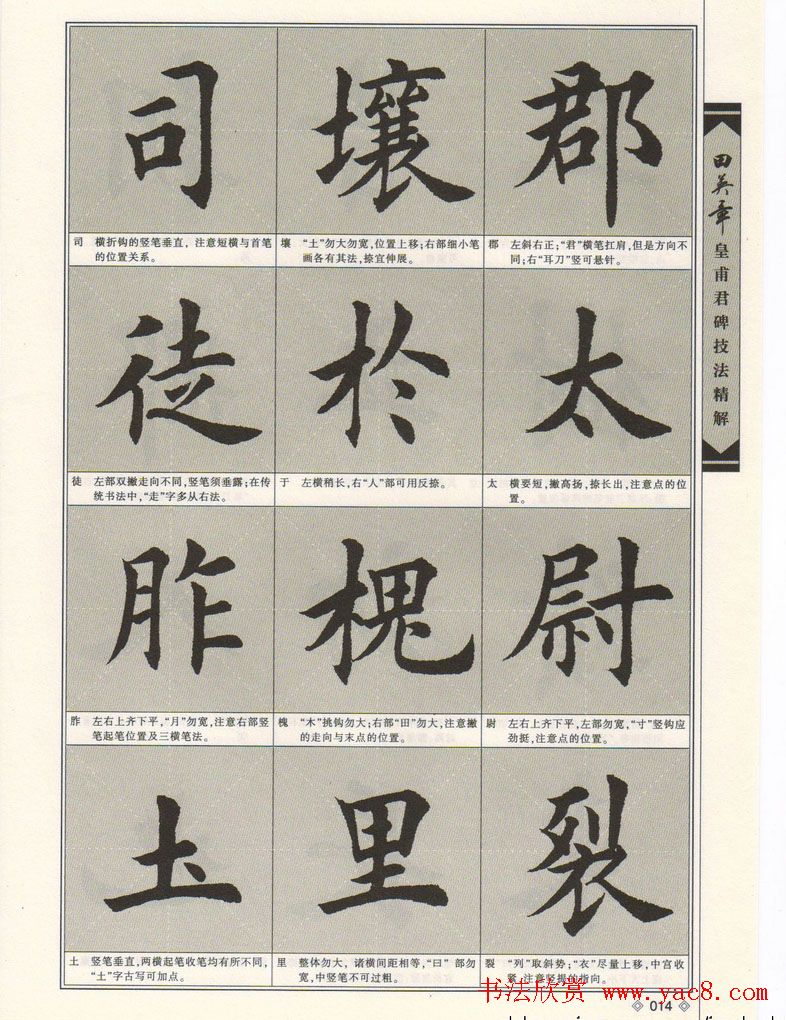 司
壤
郡
司 横折钩的竖笔垂直，注意短横与首笔
的位置关系。
壤 “土”勿大勿宽，位置上移；右部细小笔
画各有其法，捺宜伸展。
郡 左斜右正；“君”横笔扛肩，但是方向不
同；右“耳刀”竖可悬针。
徒
於
太
徒 左部双撇走向不同，竖笔须垂露；在传
统书法中，“走”字多从右法。
于 左横稍长，右“人”部可用反捺。
太 横要短，撇高扬，捺长出，注意点的位
置。
胙
槐
尉
胙 左右上齐下平，“月”勿宽，注意右部竖
笔起笔位置及三横笔法。
槐 “木”挑钩勿大；右部“田”勿大，注意撇
的走向与末点的位置。
尉 左右上齐下平，左部勿宽，“寸”竖钩应
劲挺，注意点的位置。
土
里
裂
土 竖笔垂直，两横起笔收笔均有所不同，
“土”字古写可加点。
里 整体勿大，诸横间距相等，“曰”部勿
宽，中竖笔不可过粗。
裂 “列”取斜势；“衣”尽量上移，中宫收
紧，注意竖提的指向。
田英章
皇甫君碑技法精解
书法欣赏 www.yac8.com
014